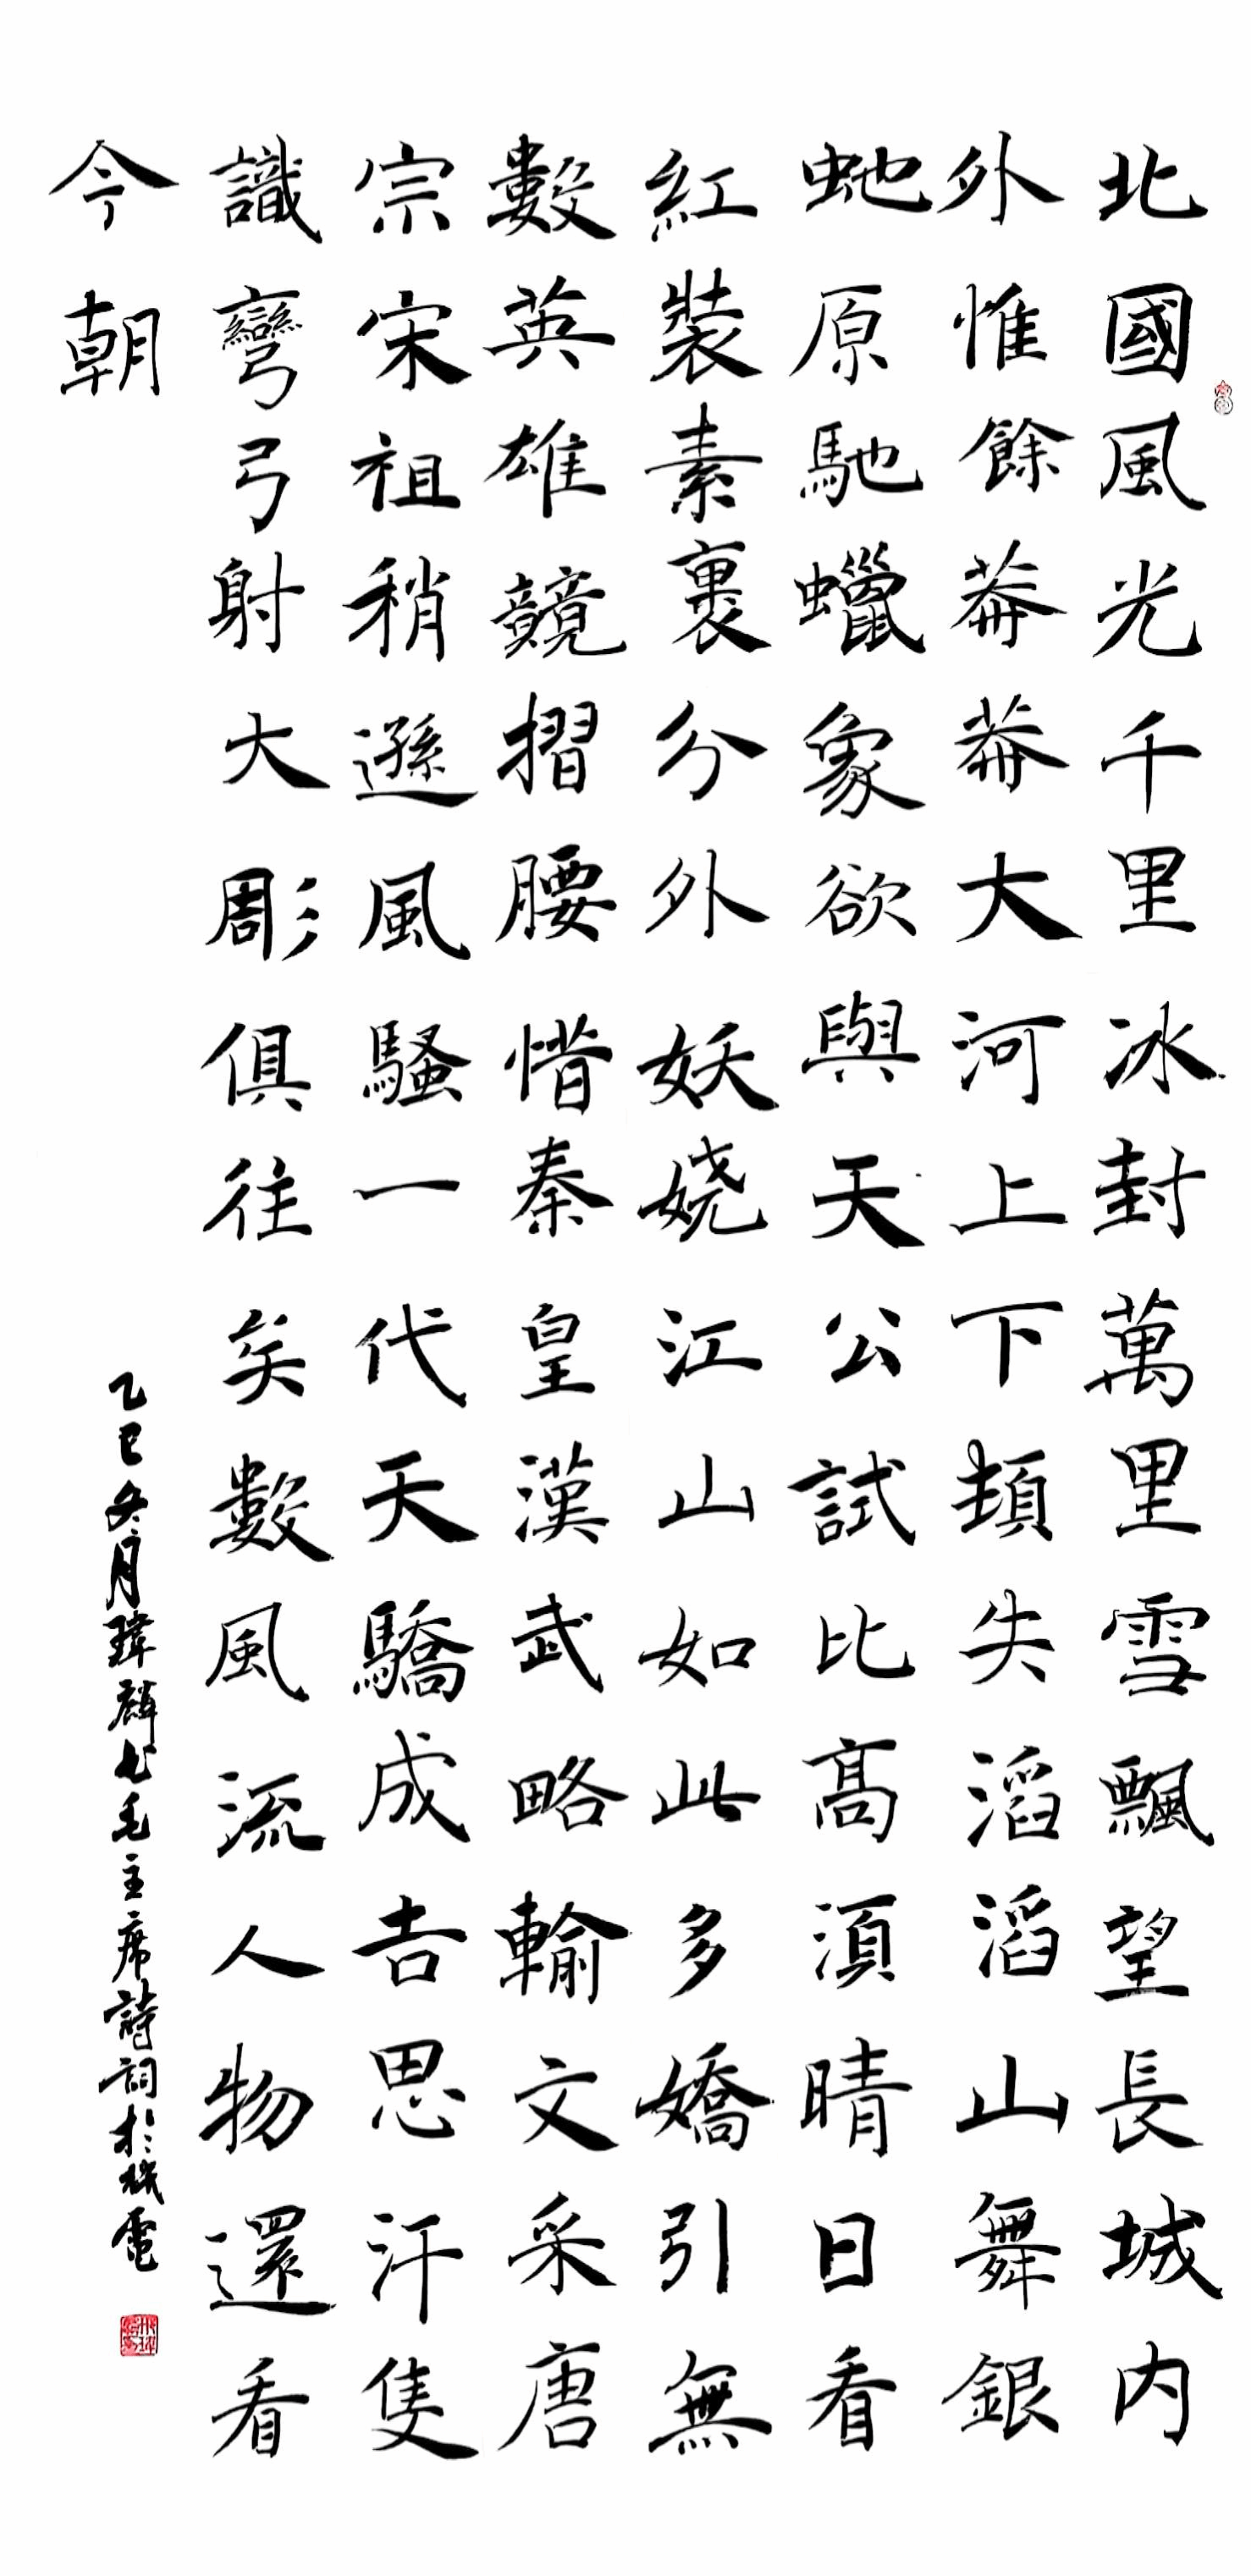 北國風光千里冰封萬里雪飄望長城内
外惟餘莽莽大河上下頓失滔滔山舞銀
虵原馳蠟象欲與天公試比髙湏晴日看
紅裝素裹分外妖娆江山如此多嬌引無
數英雄競摺腰惜秦皇漢武略輸文采唐
宗宋祖稍遜風騷一代天驕成吉思汗隻
識彎弓射大彫俱往矣數風流人物還看
今朝
乙巳冬月瑋麟书毛主席詩詞於機電